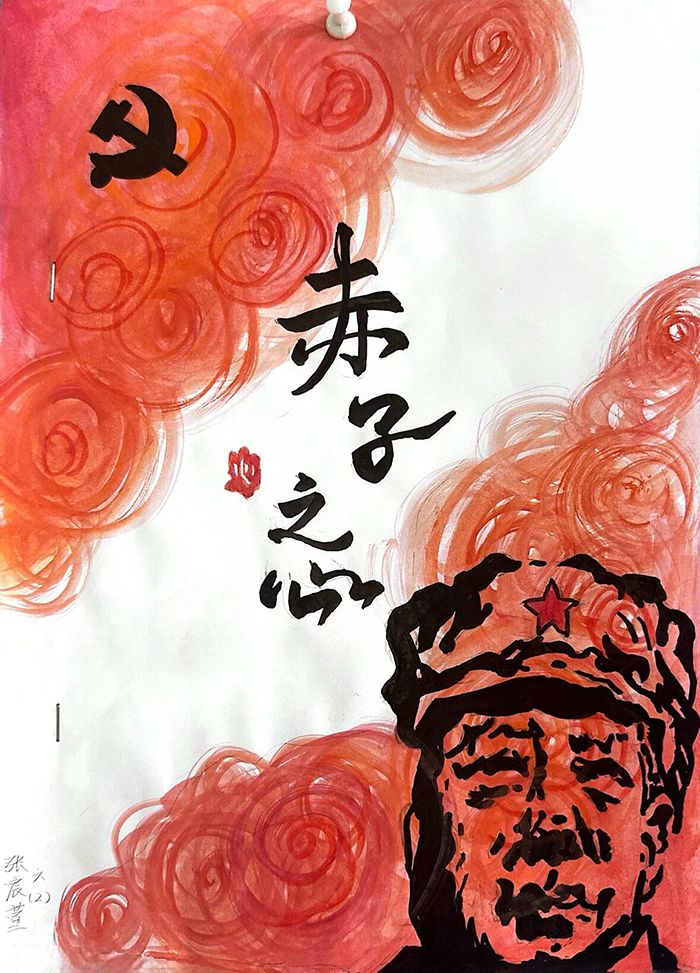 赤子之心
六(2)
张宸萱